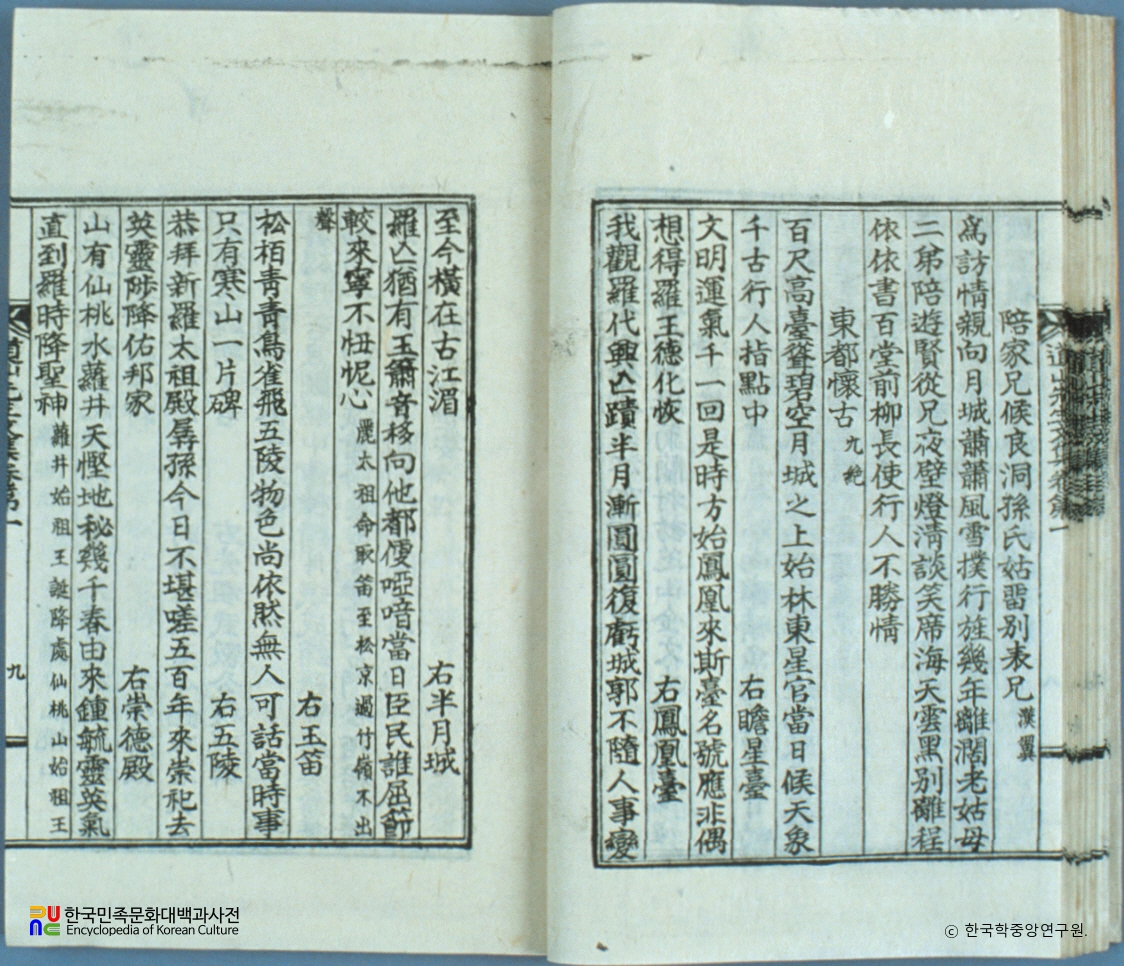 陪家兄候良洞孫氏姑留別表兄 漢翼
爲訪情親向月城蕭蕭風雪撲行旌幾年離濶老姑母
二弟陪遊賢從兄夜壁燈淸談笑席海天雲黑別離程
依依書百堂前柳長使行人不勝情
東都懷古 九絶
百尺高臺聳碧空月城之上始林東星官當日候天象
千古行人指點中 右瞻星臺
文明運氣千一回是時方始鳳凰來斯臺名號應非偶
想得羅王德化恢 右鳳凰臺
我觀羅代興亾蹟半月漸圓圓復虧城郭不隨人事變
至今橫在古江湄 右半月城
羅亾猶有玉簫音移向他都便啞喑當日臣民誰屈節
較來寧不忸怩心 麗太祖命取笛至松京過竹嶺不出
聲 右玉笛
松栢靑靑鳥雀飛五陵物色尙依然無人可話當時事
只有寒山一片碑 右五陵
恭拜新羅太祖殿孱孫今日不堪嗟五百年來崇祀去
英靈陟降佑邦家 右崇德殿
山有仙桃水蘿井天慳地秘幾千春由來鍾毓靈英氣
直到羅時降聖神 蘿井始祖王誕降處仙桃山始祖王
九
한국민족문화대백과사전
Encyclopedia of Korean Culture
© 한국학중앙연구원.